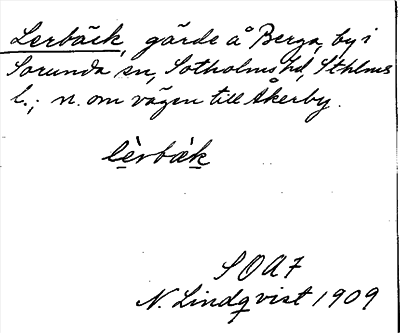 Lerbäck, gärde å Berga, by i
Sorunda sn, Sotholms hd, Sthlms
l.; n. om vägen till Åkerby.
lèrbäk
SOAF
N. Lindqvist 1909